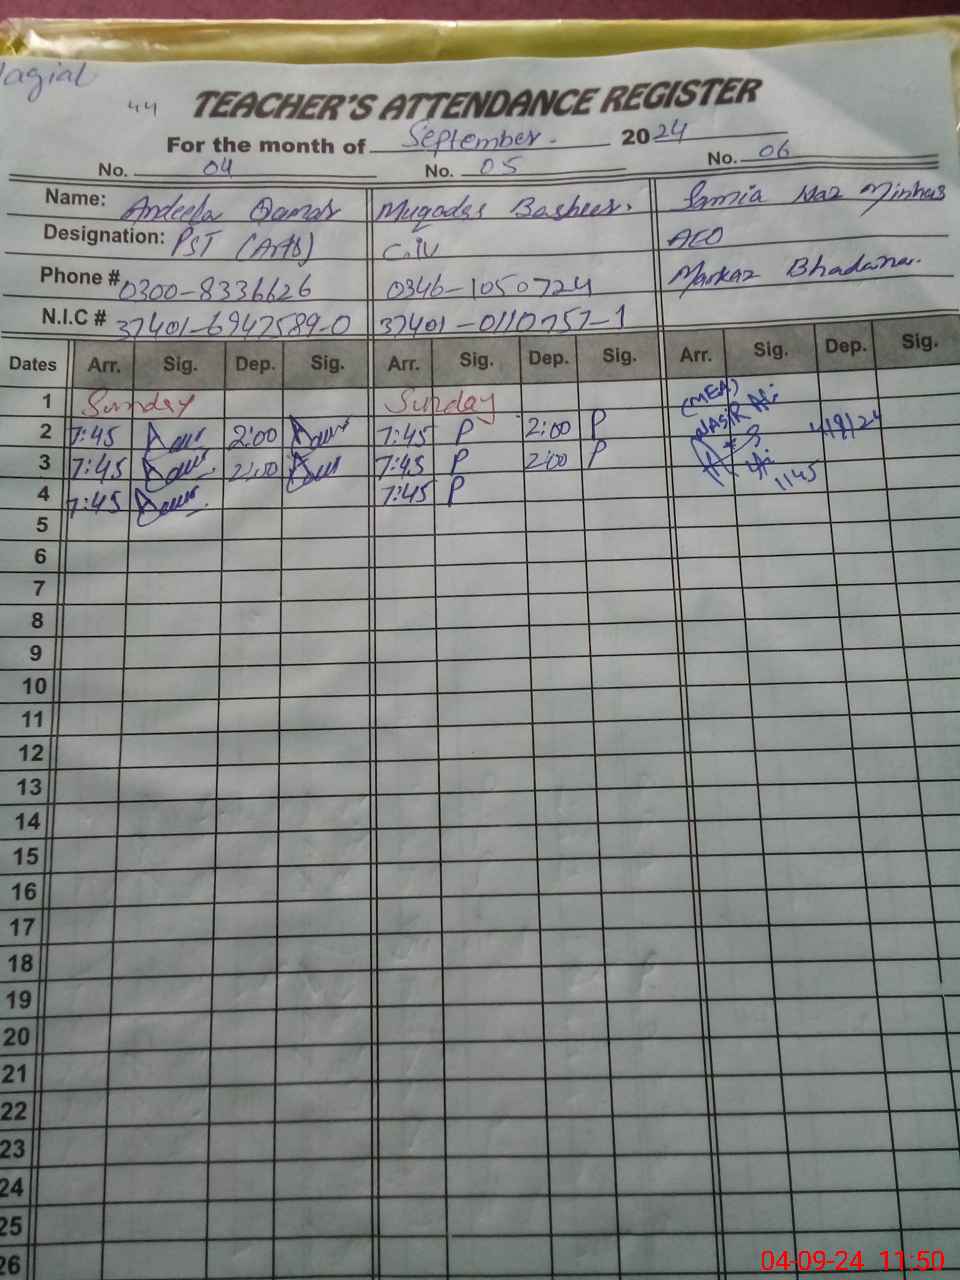 44
TEACHER'S ATTENDANCE REGISTER
For the month of September. 2024
No. 04 No. 05 No. 06
Name: Andeela Qamar Muqadas Basheer. Samia Naz Minhas
Designation: PST (Arts) C.IV AEO
Phone # 0300-8336626 0346-1050724 Markaz Bhadana.
N.I.C # 37401-6947589-0 37401-0110757-1
Dates Arr. Sig. Dep. Sig. Arr. Sig. Dep. Sig. Arr. Sig. Dep. Sig.
1 Sunday Sunday (MEA)
2 7:45 2:00 7:45 P 2:00 P NASIR Ali 4/9/24
3 7:45 2:00 7:45 P 2:00 P 1145
4 7:45 7:45 P
5
6
7
8
9
10
11
12
13
14
15
16
17
18
19
20
21
22
23
24
25
26
04-09-24 11:50